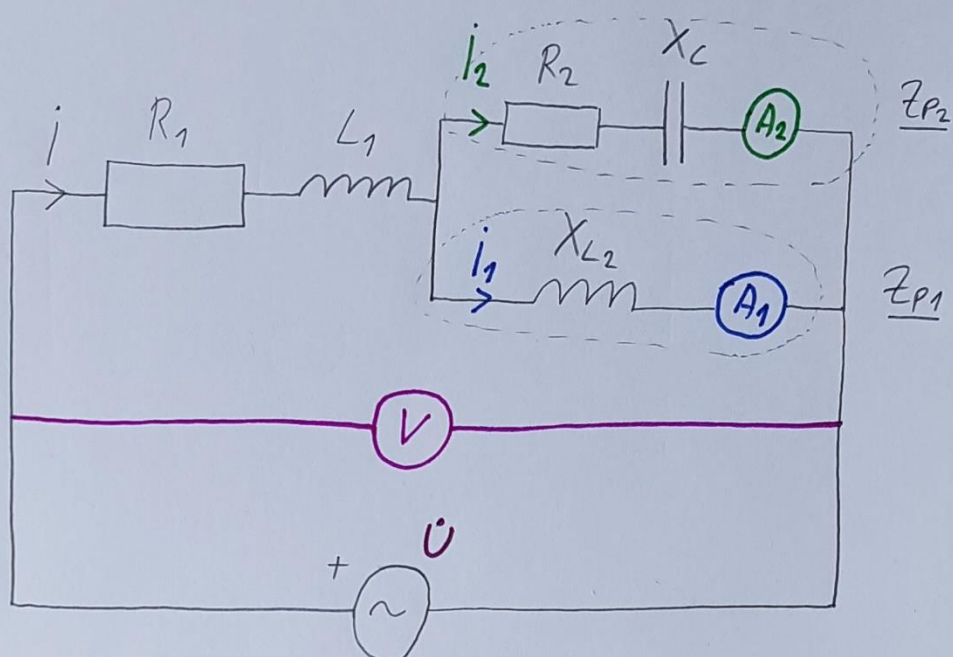 İ
R1
L1
İ2
R2
XC
A2
ZP2
İ1
XL2
A1
ZP1
V
U̇
+
~